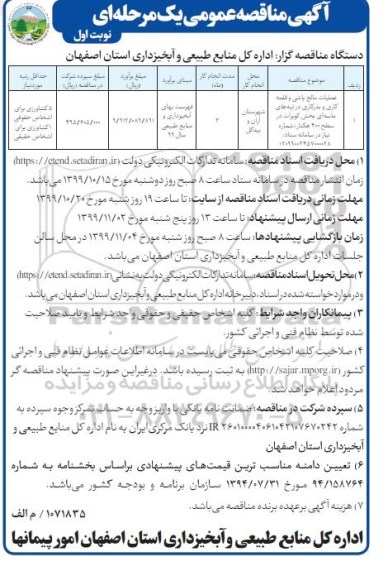 آگهی مناقصه عمومی یک مرحله‌ای
نوبت اول
دستگاه مناقصه گزار: اداره کل منابع طبیعی و آبخیزداری استان اصفهان
ردیف
موضوع مناقصه
محل انجام کار
مدت انجام کار (ماه)
مبنای برآورد
برآورد (ریال)
مبلغ سپرده شرکت در مناقصه (ریال)
حداقل رتبه موردنیاز
۱
عملیات مالچ پاشی و قلمه کاری و بذرکاری در تپه‌های ماسه‌ای بخش کویرات در سطح ۳۰۰ هکتار، شماره نیاز در سامانه ستاد:
شهرستان آران و بیدگل
۳
فهرست بهای آبخیزداری و منابع طبیعی سال ۹۹
۵ کشاورزی برای اشخاص حقوقی
۱ کشاورزی برای اشخاص حقیقی
۱) محل دریافت اسناد مناقصه: سامانه تدارکات الکترونیکی دولت (https://etend.setadiran.ir)
زمان انتشار مناقصه در سامانه ستاد ساعت ۸ صبح روز دوشنبه مورخ ۱۳۹۹/۱۰/۱۵ می‌باشد.
مهلت زمانی دریافت اسناد مناقصه از سایت: تا ساعت ۱۹ روز شنبه مورخ ۱۳۹۹/۱۰/۲۰
مهلت زمانی ارسال پیشنهاد: تا ساعت ۱۳ روز پنج شنبه مورخ ۱۳۹۹/۱۱/۰۲
زمان بازگشایی پیشنهادها: ساعت ۸ صبح روز شنبه مورخ ۱۳۹۹/۱۱/۰۴ در محل سالن
جلسات اداره کل منابع طبیعی و آبخیزداری استان اصفهان می‌باشد.
۲) محل تحویل اسناد مناقصه: سامانه تدارکات الکترونیکی دولت به نشانی (https://etend.setadiran.ir)
و در موارد خواسته شده در اسناد، دبیرخانه اداره کل منابع طبیعی و آبخیزداری استان اصفهان می‌باشد.
۳) پیمانکاران واجد شرایط: کلیه اشخاص حقیقی و حقوقی واجد شرایط و تایید صلاحیت
شده توسط نظام فنی و اجرائی کشور.
۴) صلاحیت کلیه اشخاص حقوقی می‌بایست در سامانه اطلاعات عوامل نظام فنی و اجرائی
کشور (http://sajar.mporg.ir) به ثبت رسیده باشد. در غیر این صورت پیشنهاد مناقصه گر
مردود اعلام خواهد شد.
۵) سپرده شرکت در مناقصه: ضمانت نامه بانکی یا واریز وجه به حساب تمرکز وجوه سپرده به
شماره نزد بانک مرکزی ایران به نام اداره کل منابع طبیعی و
آبخیزداری استان اصفهان
۶) تعیین دامنه مناسب ترین قیمت‌های پیشنهادی براساس بخشنامه به شماره
۹۴/۱۵۸۷۶۴ مورخ ۱۳۹۴/۰۷/۳۱ سازمان برنامه و بودجه کشور می‌باشد.
۷) هزینه آگهی برعهده برنده مناقصه می‌باشد.
۱۰۷۱۸۳۵ / م الف
اداره کل منابع طبیعی و آبخیزداری استان اصفهان امور پیمانها